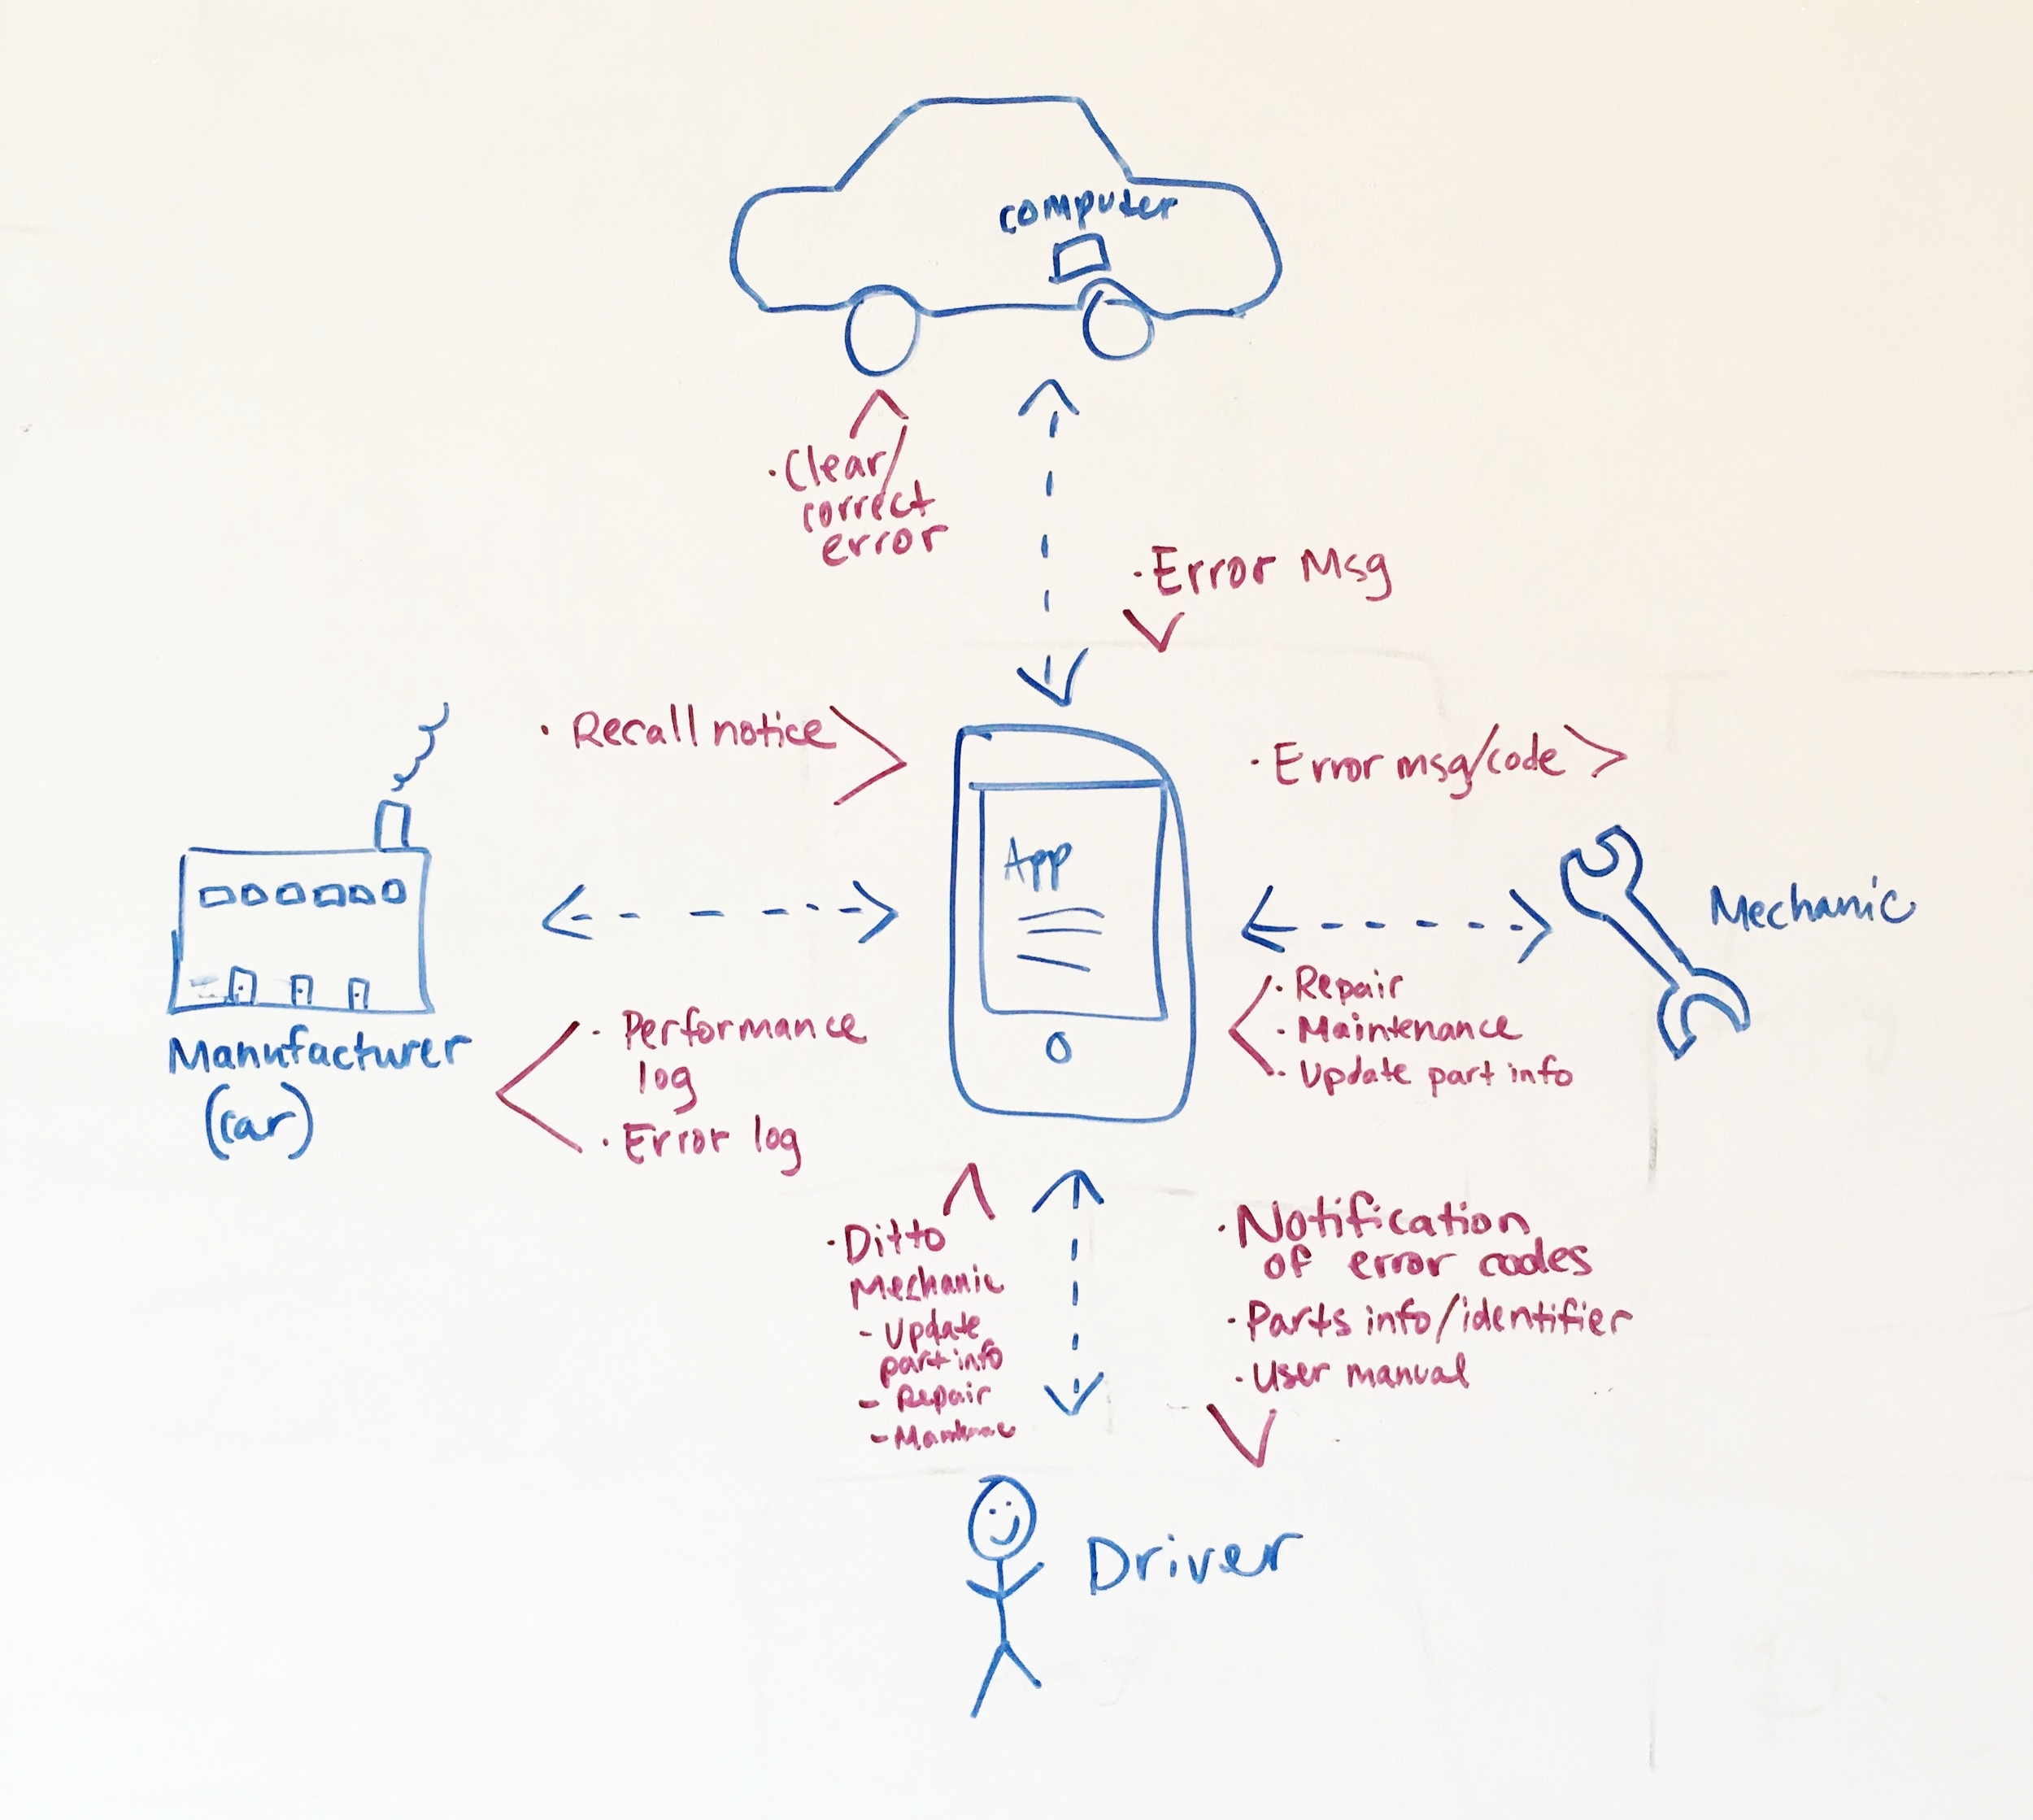 computer
· Clear/
correct
error
· Error Msg
· Recall notice
· Error msg/code
App
Mechanic
· Repair
· Maintenance
· Update part info
Manufacturer
(car)
· Performance
log
· Error log
· Ditto
Mechanic
- Update
part info
- Repair
· Notification
of error codes
· Parts info/identifier
· User manual
Driver